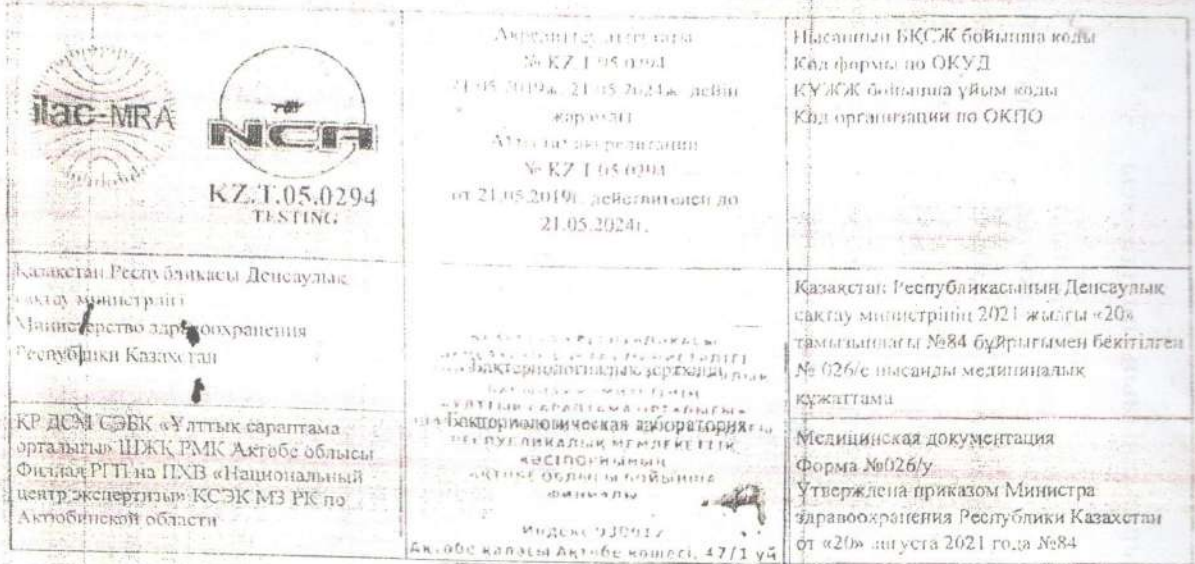 ilac-MRA
NCA
KZ.T.05.0294
TESTING
№ KZ.T.05.0294
21.05.2019ж. 21.05.2024ж. дейін
жарамды
Аттестат аккредитации
№ KZ.T.05.0294
от 21.05.2019г. действителен до
21.05.2024г.
Нысанның БҚСЖ бойынша коды
Код формы по ОКУД
КҰЖЖ бойынша ұйым коды
Код организации по ОКПО
Қазақстан Республикасы Денсаулық
сақтау министрлігі
Министерство здравоохранения
Республики Казахстан
Бактериологиялық зертхана
Бактериологическая лаборатория
РЕСПУБЛИКАЛЫҚ МЕМЛЕКЕТТІК
КӘСІПОРНЫНЫҢ
АҚТӨБЕ ОБЛЫСЫ БОЙЫНША
ФИЛИАЛЫ
Индекс 030012
Ақтөбе қаласы Ақтөбе көшесі, 47/1 үй
Қазақстан Республикасының Денсаулық
сақтау министрінің 2021 жылғы «20»
тамызындағы №84 бұйрығымен бекітілген
№ 026/е нысанды медициналық
құжаттама
ҚР ДСМ СЭБК «Ұлттық сараптама
орталығы» ШЖҚ РМК Ақтөбе облысы
Филиал РГП на ПХВ «Национальный
центр экспертизы» КСЭК МЗ РК по
Актюбинской области
Медицинская документация
Форма №026/у
Утверждена приказом Министра
здравоохранения Республики Казахстан
от «20» августа 2021 года №84